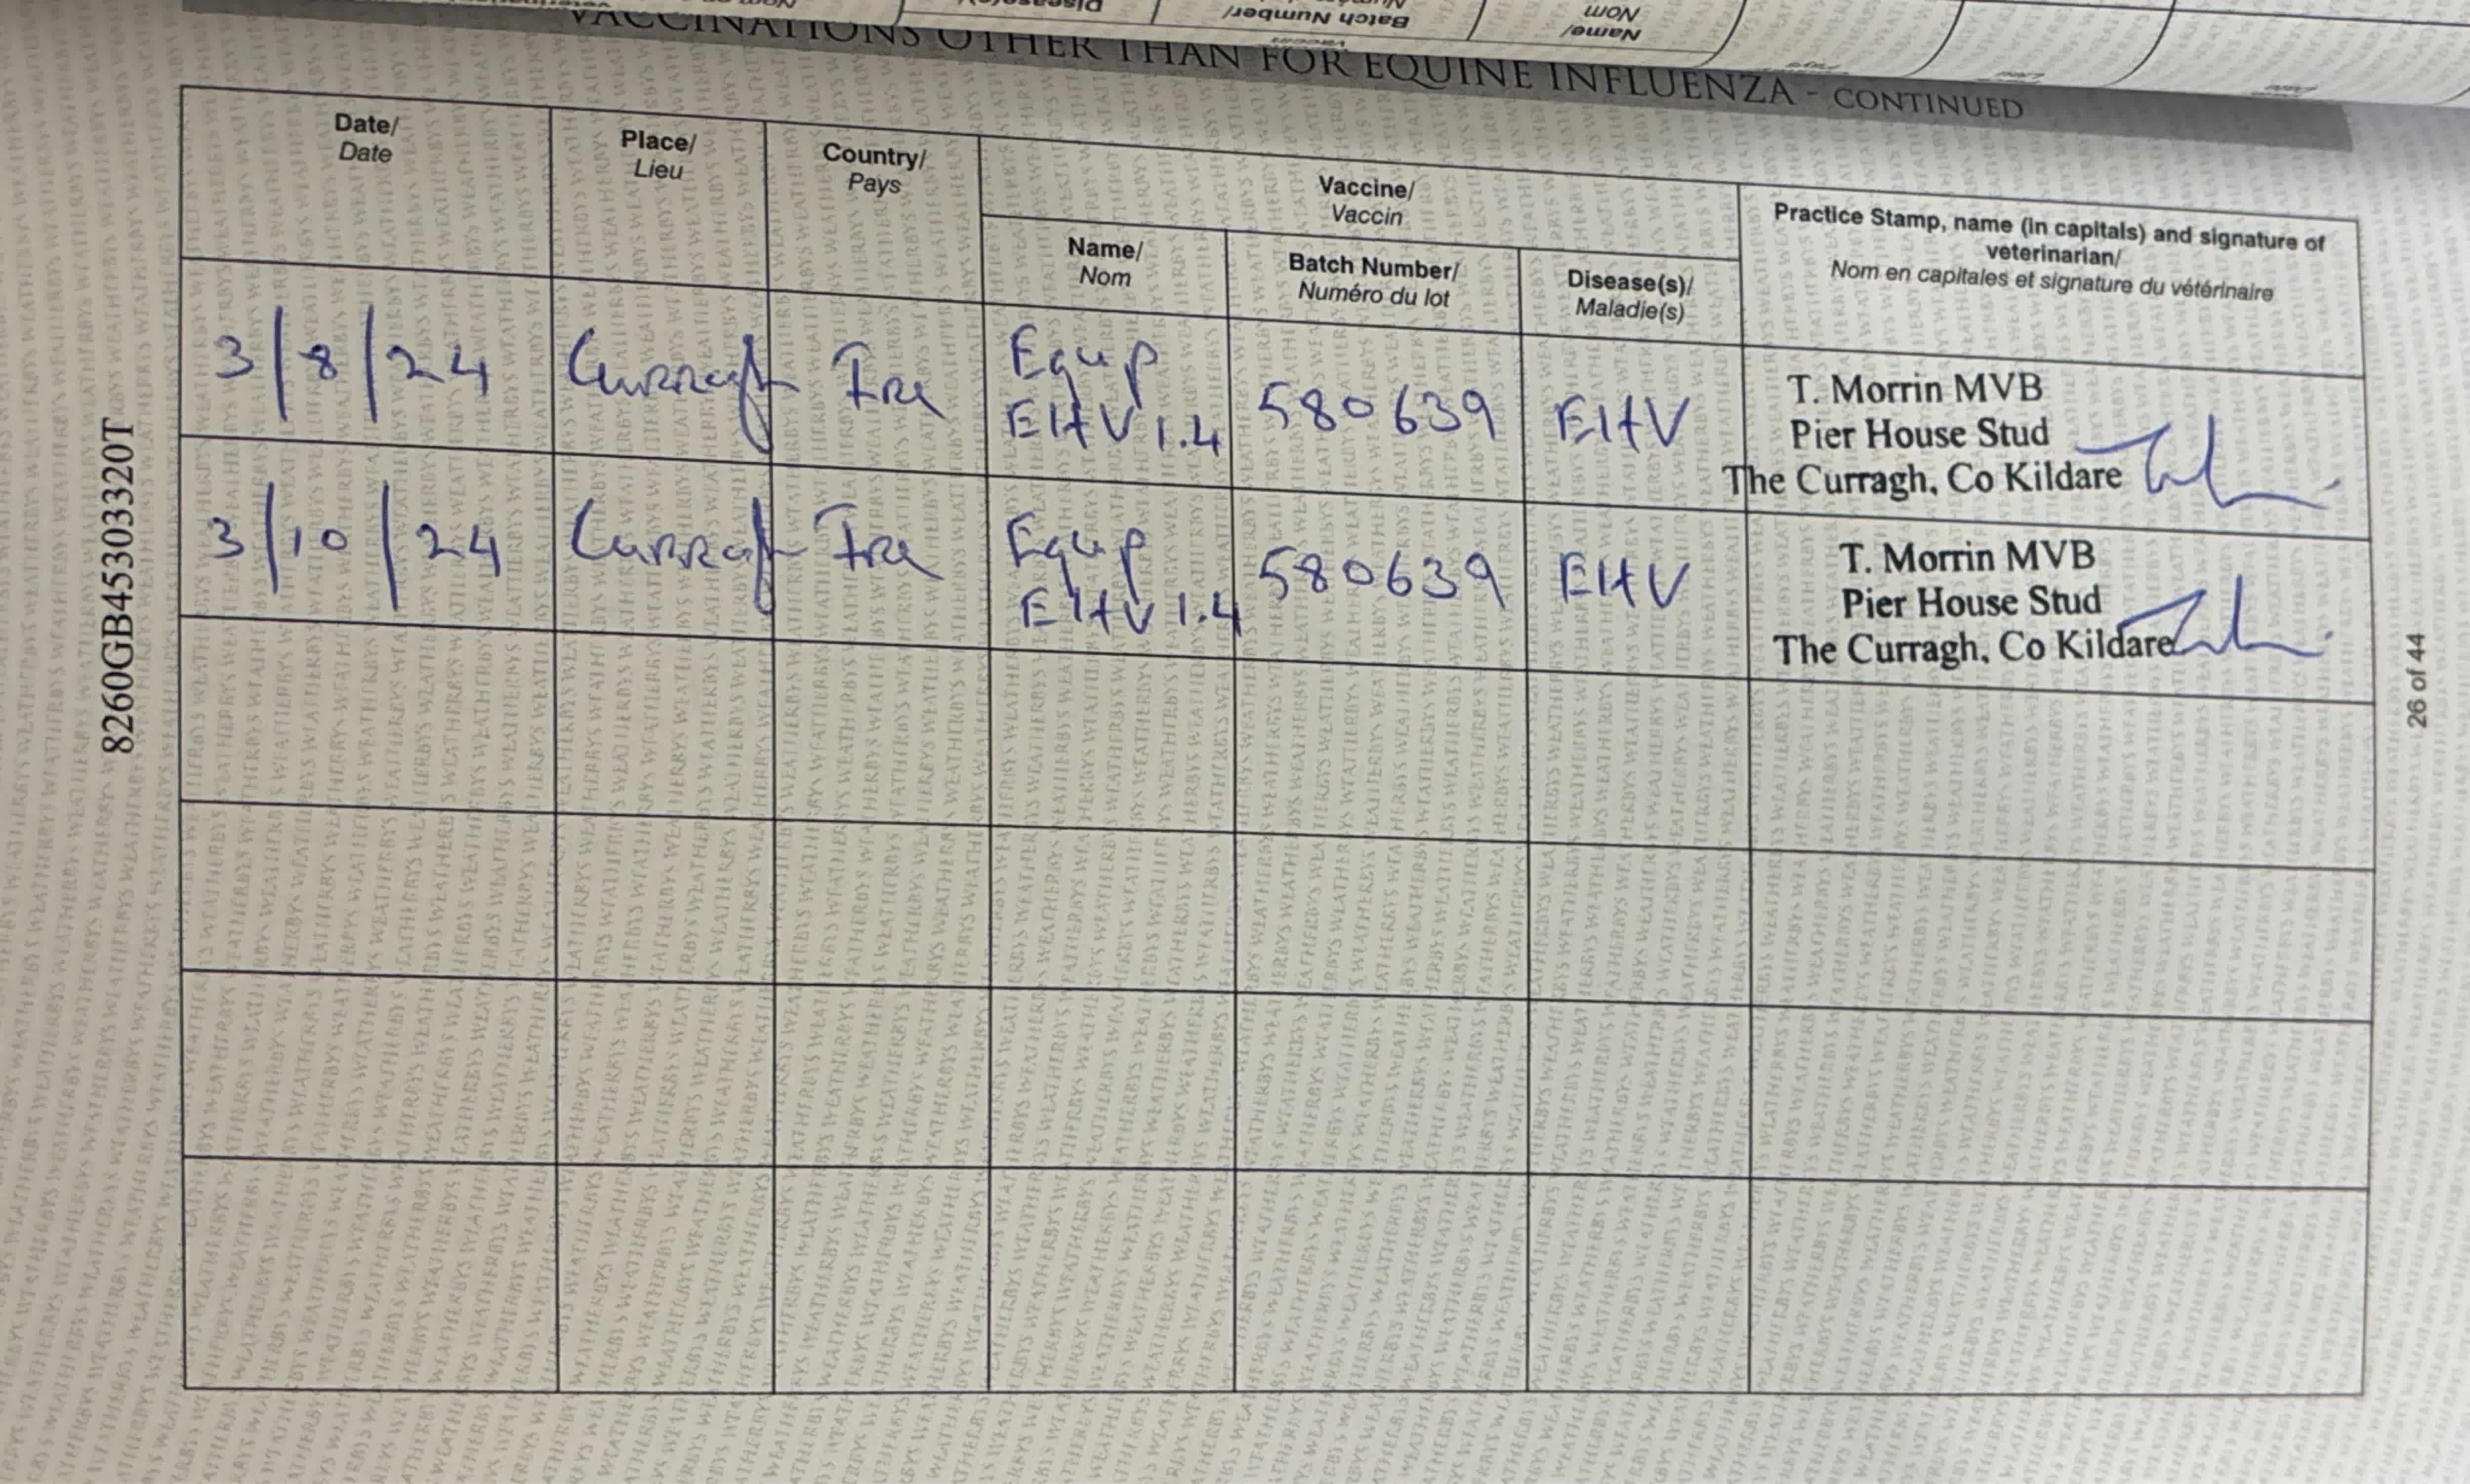 Name/
Nom
Batch Number/
VACCINATIONS OTHER THAN FOR EQUINE INFLUENZA - CONTINUED
Date/
Date
Place/
Lieu
Country/
Pays
Vaccine/
Vaccin
Name/
Nom
Batch Number/
Numéro du lot
Disease(s)/
Maladie(s)
Practice Stamp, name (in capitals) and signature of
veterinarian/
Nom en capitales et signature du vétérinaire
3/8/24 Curragh Ire Equip
EHV 1.4 580639 EHV
T. Morrin MVB
Pier House Stud
The Curragh, Co Kildare
3/10/24 Curragh Ire Equip
EHV 1.4 580639 EHV
T. Morrin MVB
Pier House Stud
The Curragh, Co Kildare
8260GB45303320T
26 of 44